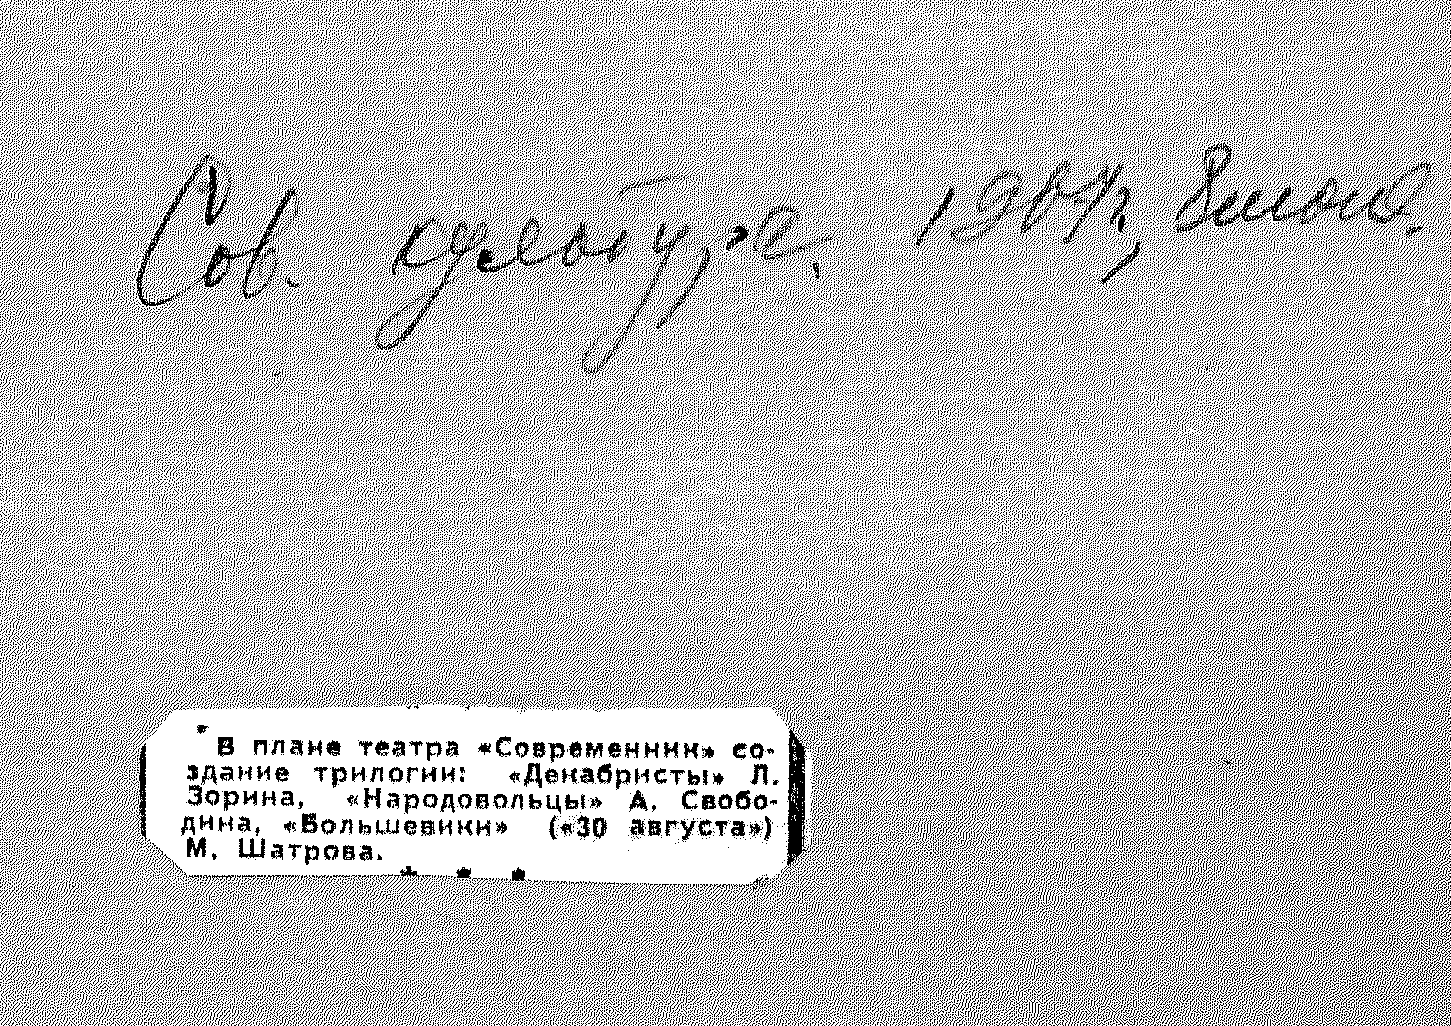 Сов. культура, 1967, 8 июня.
В плане театра «Современник» со-
здание трилогии: «Декабристы» Л.
Зорина, «Народовольцы» А. Свобо-
дина, «Большевики» («30 августа»)
М. Шатрова.
* * *